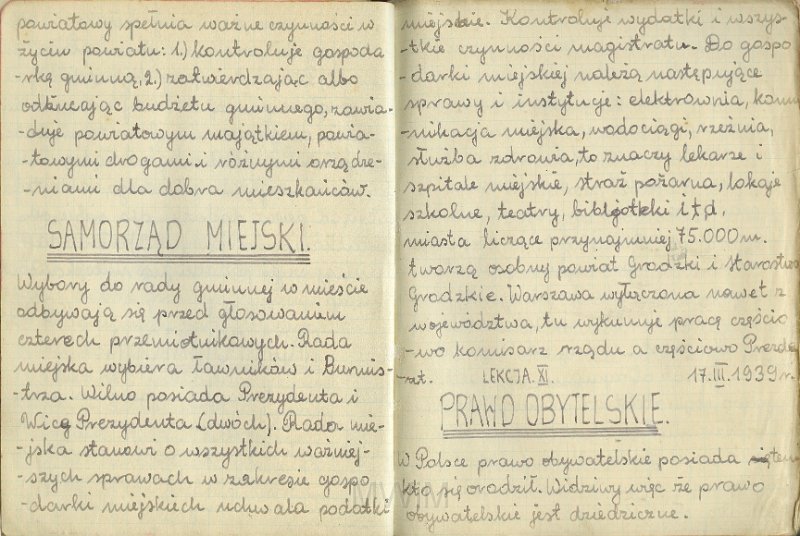 powiatowy spełnia ważne czynności w
życiu powiatu: 1.) kontroluje gospoda
rkę gminną, 2.) zatwierdzając albo
odrzucając budżetu gminnego, zawia-
-duje powiatowym majątkiem, powia-
-towymi drogami i różnymi urządze-
-niami dla dobra mieszkańców.
SAMORZĄD MIEJSKI.
Wybory do rady gminnej w mieście
odbywają się przed głosowaniem
czterech przemiotnikowych. Rada
miejska wybiera ławników i Burmis-
-trza. Wilno posiada Prezydenta i
Wicę Prezydenta (dwóch). Rada mie-
-jska stanowi o wszystkich ważniej-
-szych sprawach w zakresie gospo
-darki miejskich uchwala podatki
miejskie. Kontroluje wydatki i wszys-
-tkie czynności magistratu. Do gospo
-darki miejskiej należą następujące
sprawy i instytuje: elektrownia, komu
-nikacja miejska, wodociągi, rzeźnia,
służba zdrowia, to znaczy lekarze i
szpitale miejskie, straż pożarna, lokaje
szkolne, teatry, bibljotekki i t d.
miasta liczące przynajmniej 75.000 m.
tworzą osobny powiat Grodzki i Starostwo
Grodzkie. Warszawa wyłączona nawet z
województwa, tu wykunuje pracę częścio
-wo komisarz rządu a częściowo Prezde
-nt. LEKCJA XI. 17.III.1939 r.
PRAWO OBYTELSKIE.
W Polsce prawo obywatelskie posiada ten
kto się urodził. Widzimy więc że prawo
obywatelskie jest dziedziczne.